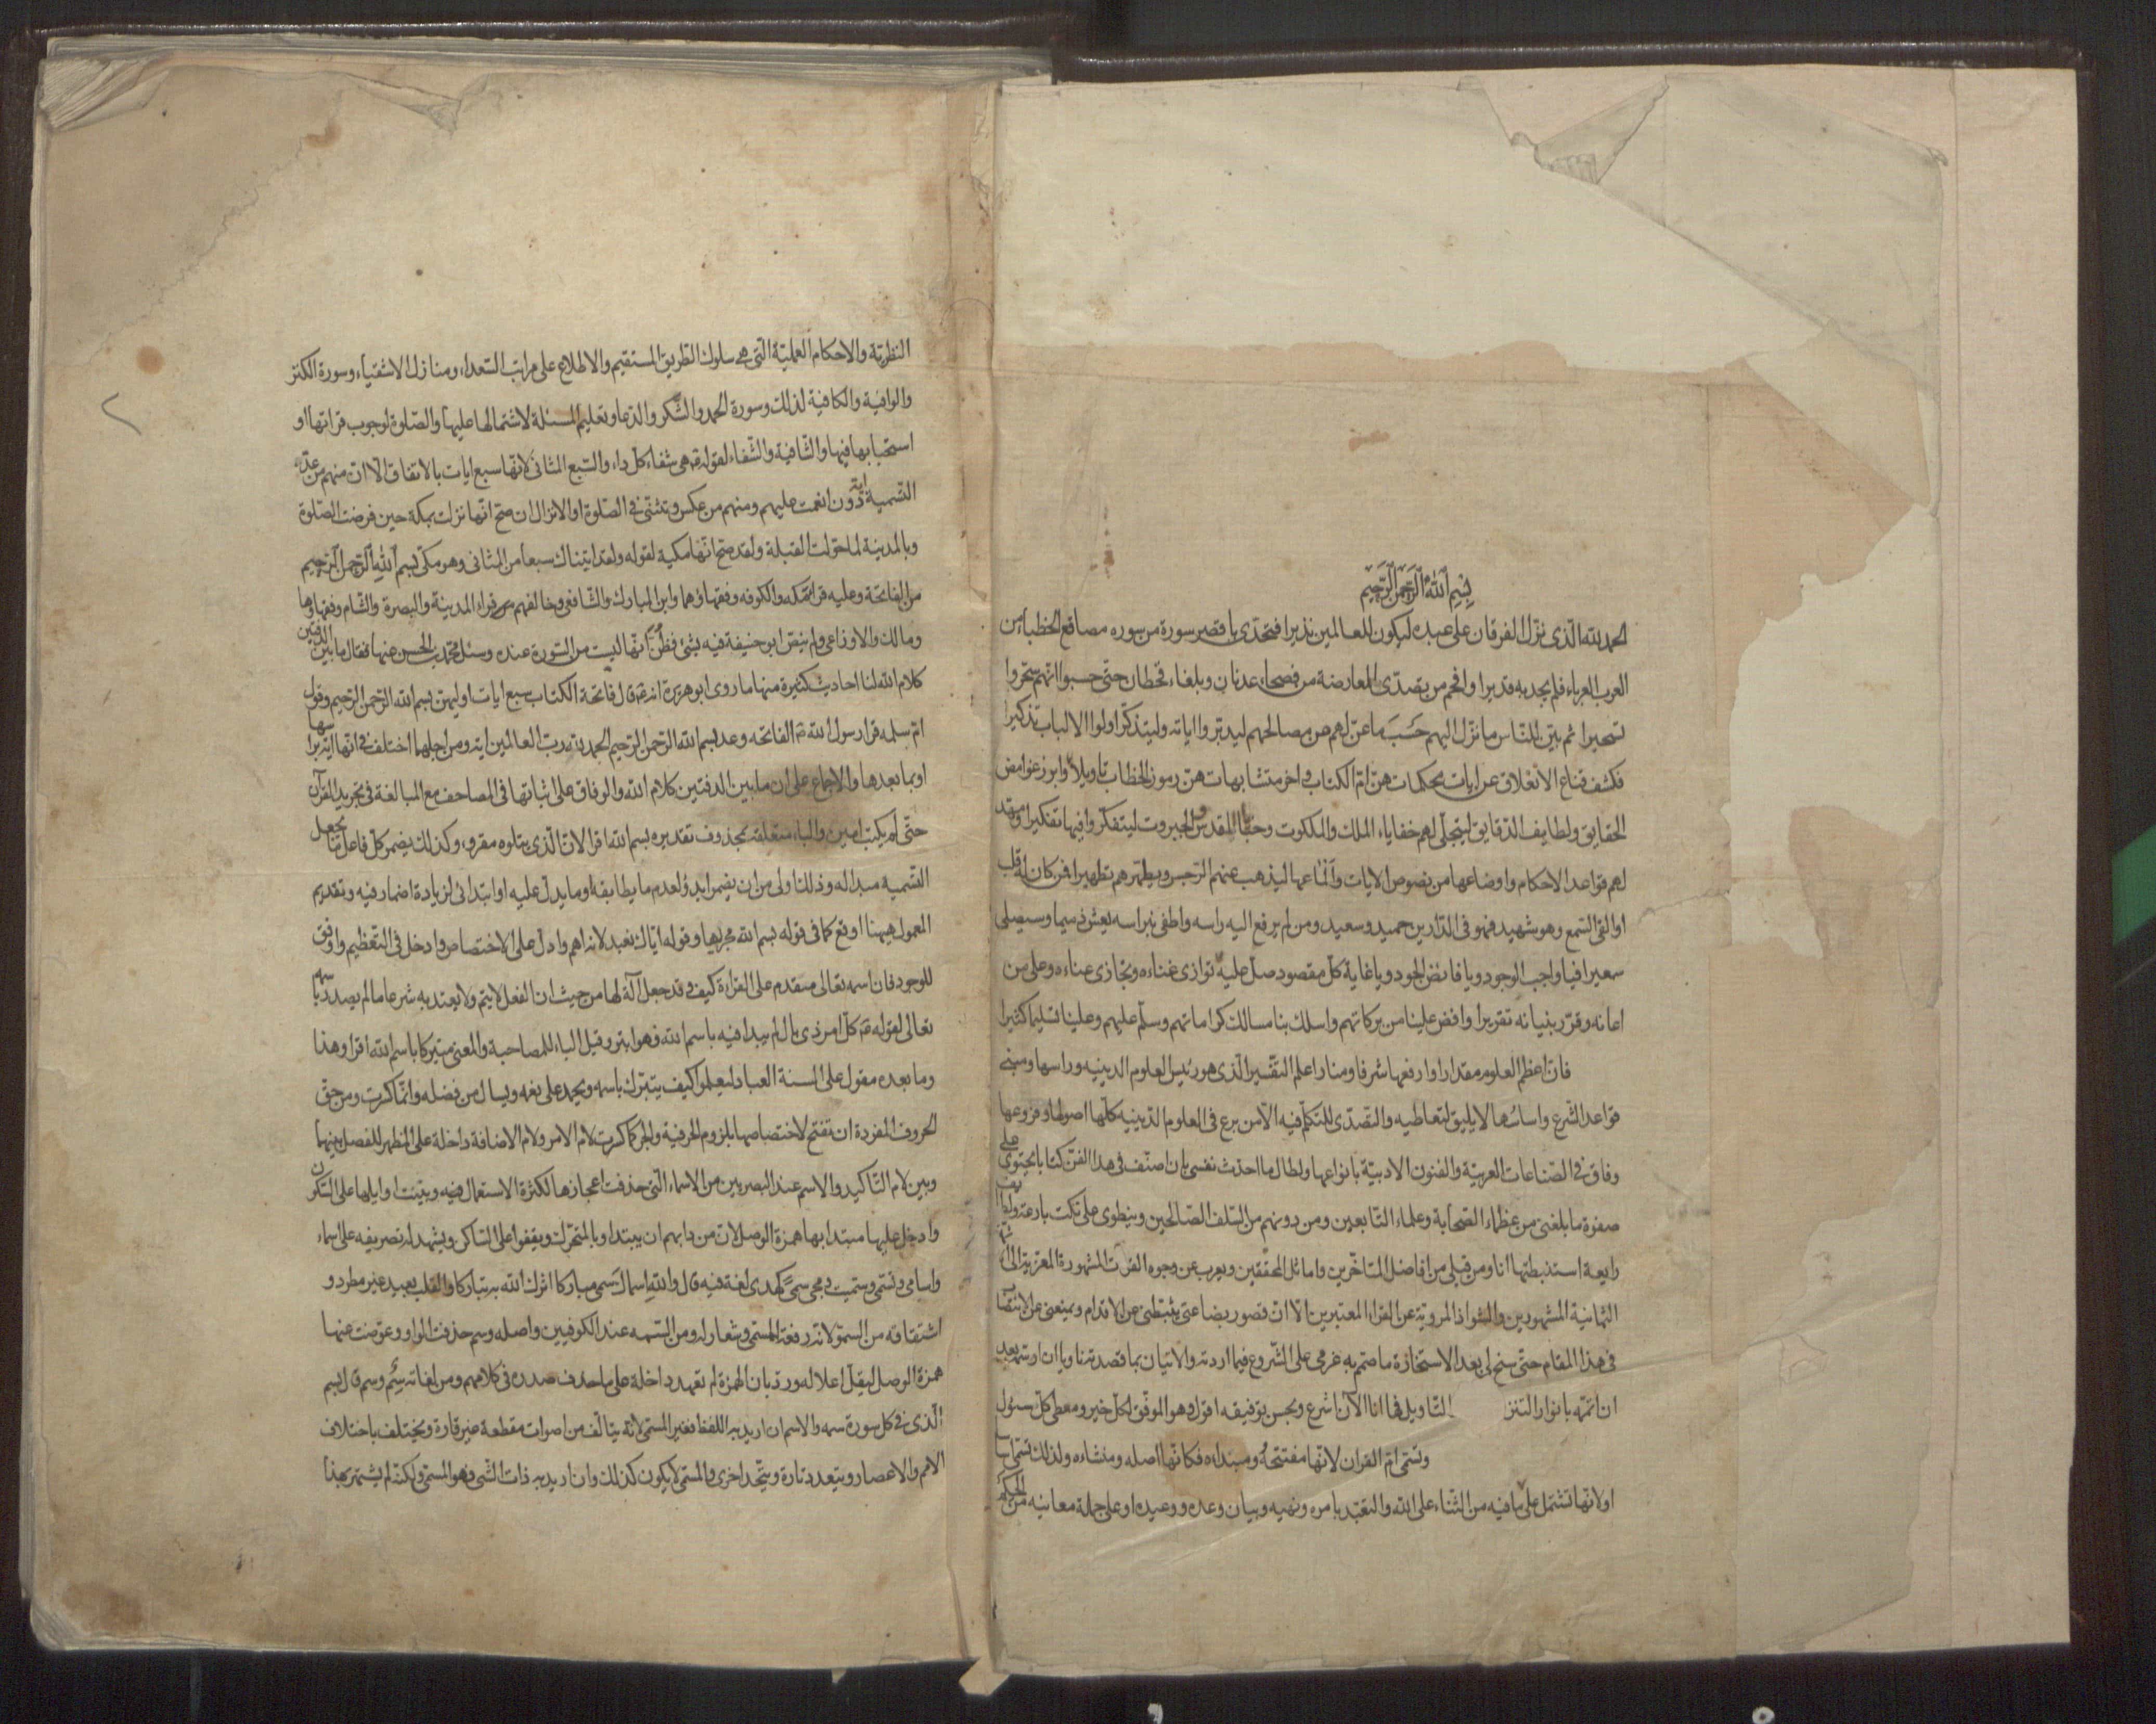 بسم الله الرحمن الرحيم
الحمد لله الذى نزل الفرقان على عبده ليكون للعالمين نذيرا فتحدى باقصر سورة من سوره مصاقع الخطباء من
العرب العرباء فلم يجد به قديرا وافحم من تصدى لمعارضته من فصحاء عدنان وبلغاء قحطان حتى حسبوا انهم سحروا
تسحيرا ثم بين للناس ما نزل اليهم حسب ما عن لهم من مصالحهم ليدبروا اياته وليتذكر اولوا الالباب تذكيرا
فكشف قناع الانغلاق عن ايات محكمات هن ام الكتاب واخر متشابهات هن رموز الخطاب تاويلا وابرز غوامض
الحقايق ولطايف الدقايق ليتجلى لهم خفايا الملك والملكوت وخبايا القدس والجبروت ليتفكروا فيها تفكيرا ومهد
لهم قواعد الاحكام واوضاعها من نصوص الايات والماعها ليذهب عنهم الرجس ويطهرهم تطهيرا فمن كان له قلب
او القى السمع وهو شهيد فهو فى الدارين حميد وسعيد ومن لم يرفع اليه راسه واطفى نبراسه يعش ذميما وسيصلى
سعيرا فيا واجب الوجود ويا فائض الجود ويا غاية كل مقصود صل عليه صلوة توازى غناءه وتجازى عناءه وعلى من
اعانه وقرر بنيانه تقريرا وافض علينا من بركاتهم واسلك بنا مسالك كراماتهم وسلم عليهم وعلينا تسليما كثيرا
فان اعظم العلوم مقدارا وارفعها شرفا ومنارا علم التفسير الذى هو رئيس العلوم الدينيه وراسها ومبنى
قواعد الشرع واساسها لا يليق لتعاطيه والتصدى للتكلم فيه الا من برع فى العلوم الدينيه كلها اصولها وفروعها
وفاق فى الصناعات العربية والفنون الادبية بانواعها ولطال ما احدث نفسى بان اصنف فى هذا الفن كتابا يحتوى على
صفوة ما بلغنى من عظماء الصحابة وعلماء التابعين ومن دونهم من السلف الصالحين وينطوى على نكت بارعة ولطائف
رايعة استنبطتها انا ومن قبلى من افاضل المتاخرين واماثل المحققين ويعرب عن وجوه القرات المشهورة المعزية الى الائمة
الثمانية المشهورين والشواذ المروية عن القراء المعتبرين الا ان قصور بضاعتى يثبطنى عن الاقدام ويمنعنى عن الانتصاب
فى هذا المقام حتى سنح لى بعد الاستخارة ما صمم به عزمى على الشروع فيما اردته والاتيان بما قصدته ناويا ان اسميه بعد
ان اتممه بانوار التنز التاويل فها انا الان اشرع وبحسن توفيقه اقول وهو الموفق لكل خير ومعطى كل سئول
وتسمى ام القران لانها مفتتحه ومبداءه فكانها اصله ومنشاءه ولذلك تسمى اساسا
او لانها تشتمل على ما فيه من الثناء على الله والتعبد بامره ونهيه وبيان وعده ووعيده او على جملة معانيه من الحكم
النظرية والاحكام العملية التى هى سلوك الطريق المستقيم والاطلاع على مراتب السعداء ومنازل الاشقياء وسورة الكنز
والوافية والكافية لذلك وسورة الحمد والشكر والدعاء وتعليم المسئلة لاشتمالها عليها والصلوة لوجوب قراتها او
استحبابها فيها والشافية والشفاء لقوله هى شفاء كل داء والسبع المثانى لانها سبع ايات بالاتفاق الا ان منهم من عد
التسمية اية دون انعمت عليهم ومنهم من عكس وتثنى فى الصلوة او الانزال ان صح انها نزلت بمكة حين فرضت الصلوة
وبالمدينة لما حولت القبلة ولقد صح انها مكية لقوله ولقد اتيناك سبعا من المثانى وهو مكى بسم الله الرحمن الرحيم
من الفاتحة وعليه قراء مكه والكوفه وفقهاؤهما وابن المبارك والشافعى وخالفهم قراء المدينة والبصرة والشام وفقهاؤها
ومالك والاوزاعى ولم ينص ابو حنيفة فيه بشئ فظن انها ليست من السورة عنده وسئل محمد بن الحسن عنها فقال ما بين الدفتين
كلام الله لنا احاديث كثيرة منها ما روى ابو هريرة انه قال فاتحة الكتاب سبع ايات اوليهن بسم الله الرحمن الرحيم وقول
ام سلمه قرا رسول الله الفاتحه وعد بسم الله الرحمن الرحيم الحمد لله رب العالمين اية ومن اجلهما اختلف فى انها اية براسها
او بما بعدها والاجماع على ان ما بين الدفتين كلام الله والوفاق على اثباتها فى المصاحف مع المبالغة فى تجريد القرآن
حتى لم يكتب امين والباء متعلقة بمحذوف تقديره بسم الله اقرا لان الذى يتلوه مقروء وكذلك يضمر كل فاعل ما يجعل
التسمية مبدا له وذلك اولى من ان يضمر ابدؤ لعدم ما يطابقه او ما يدل عليه او ابتدائى لزيادة اضمار فيه وتقديم
المعمول ههنا اوقع كما فى قوله بسم الله مجريها وقوله اياك نعبد لانه اهم وادل على الاختصاص وادخل فى التعظيم واوفق
للوجود فان اسمه تعالى متقدم على القراءة كيف وقد جعل آلة لها من حيث ان الفعل لا يتم ولا يعتد به شرعا ما لم يصدر باسمه
تعالى لقوله كل امر ذى بال لم يبدا فيه باسم الله فهو ابتر وقيل الباء للمصاحبة والمعنى متبركا باسم الله اقرا وهذا
وما بعده مقول على السنة العباد ليعلموا كيف يتبرك باسمه ويحمد على نعمه ويسال من فضله وانما كسرت ومن حق
الحروف المفردة ان تفتح لاختصاصها بلزوم الحرفية والجر كما كسرت لام الامر ولام الاضافة داخلة على المظهر للفصل بينهما
وبين لام التاكيد والاسم عند البصريين من الاسماء التى حذفت اعجازها لكثرة الاستعمال فيه وبنيت اوايلها على السكون
وادخل عليها مبتدا بها همزة الوصل لان من دابهم ان يبتداوا بالمتحرك ويقفوا على الساكن ويشهد له تصريفه على اسماء
واسامى وسمى وسميت ومجى سمى كهدى لغة فيه قال والله اسماك سمى مباركا اثرك الله به تباركا والقلب بعيد غير مطرد و
اشتقاقه من السمو لانه رفعة للمسمى وشعار له ومن السمه عند الكوفيين واصله وسم حذفت الواو وعوضت عنها
همزة الوصل ليقل اعلاله ورد بان الهمزة لم تعهد داخلة على ما حذف صدره فى كلامهم ومن لغاته سم وسم قال بسم
الذى فى كل سورة سمه والاسم ان اريد به اللفظ فغير المسمى لانه يتالف من اصوات مقطعة غير قارة ويختلف باختلاف
الامم والاعصار ويتعدد تارة ويتحد اخرى والمسمى لا يكون كذلك وان اريد به ذات الشى فهو المسمى ولكنه لم يشتهر بهذا